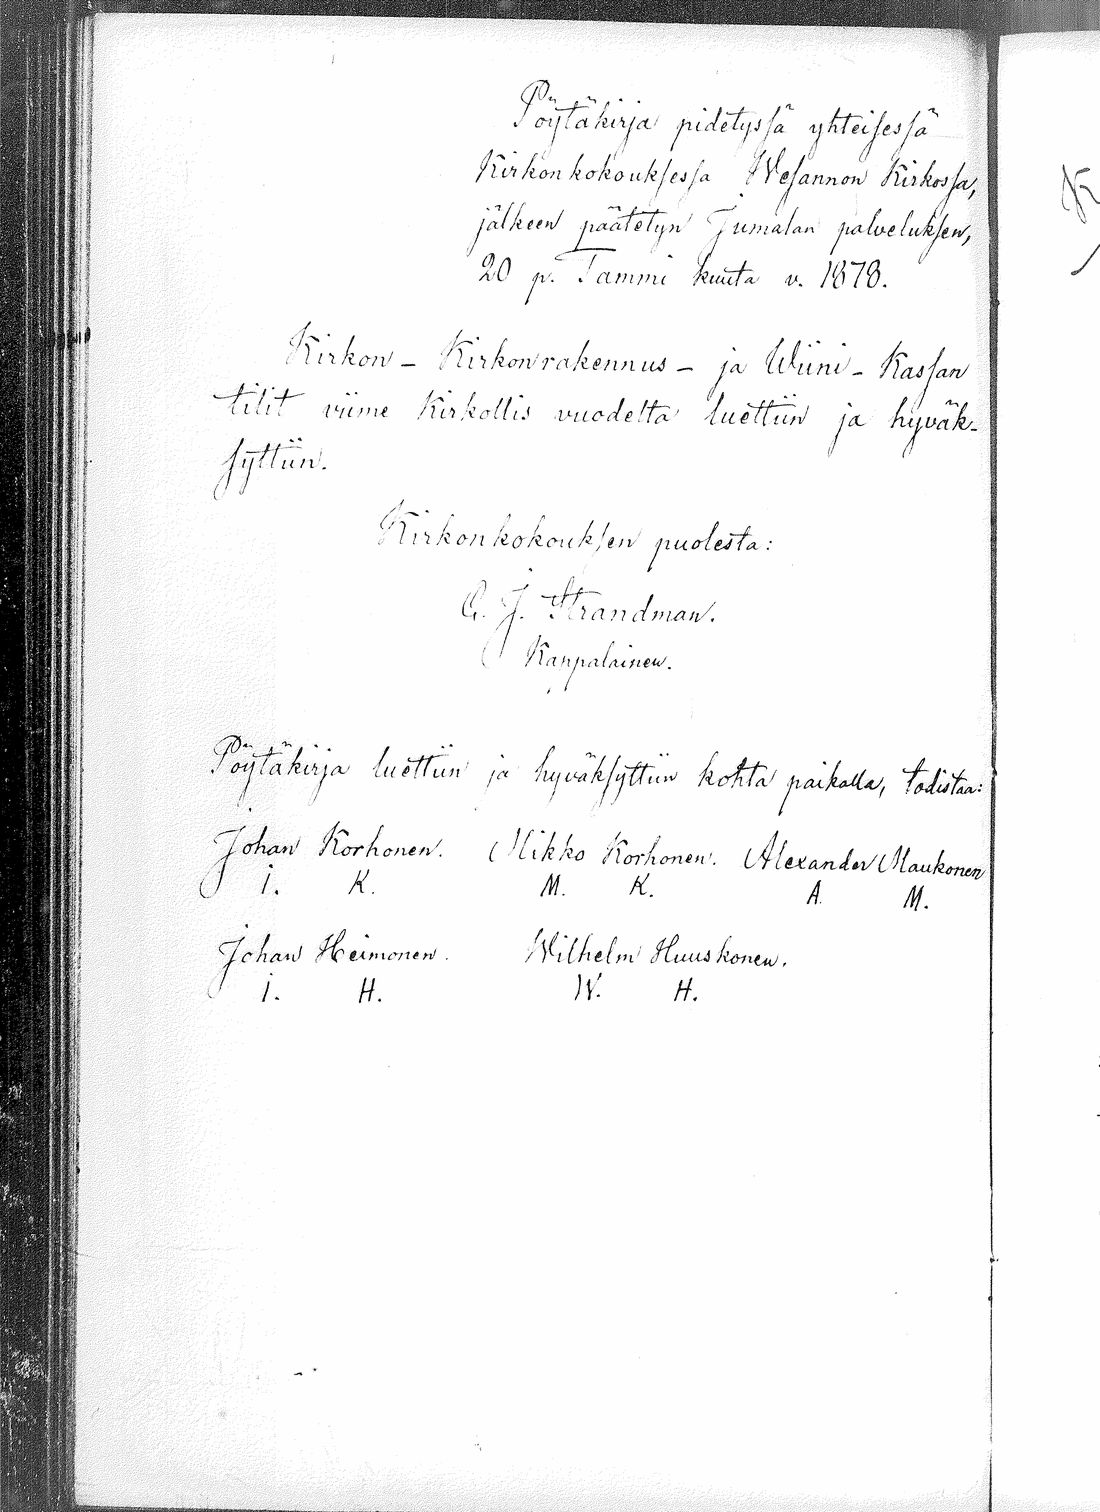 Pöytäkirja pidetyssä yhteisessä
Kirkonkokouksessa Wesannon Kirkossa,
jälkeen päätetyn Jumalan palveluksen,
20 p. Tammi kuuta v. 1878.
Kirkon - Kirkonrakennus - ja Wiini - Kassan
tilit viime Kirkollis vuodelta luettiin ja hyväk-
syttiin.
Kirkonkokouksen puolesta:
C. J. Strandman.
Kappalainen.
Pöytäkirja luettiin ja hyväksyttiin kohta paikalla, todistaa:
Johan Korhonen. Mikko Korhonen. Alexander Maukonen
I. K. M. K. A. M.
Johan Heimonen. Wilhelm Huuskonen.
I. H. W. H.